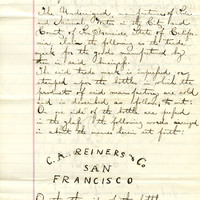 The Undersigned, manufacturers of Soda
and Mineral Waters in the City and
County of San Francisco State of Califor
nia, claim the following as the trade
mark of the goods manufactured by
them in said business.
The said trade mark is impressed or
stamped upon the bottles in which the
products of said manufacturing are sold
and is described as follows, to wit:
On one side of the bottles are pressed
in the glass the following words arranged
in about the manner herein set forth:
C. A. REINERS & Co
SAN
FRANCISCO
On the other side of the bottles